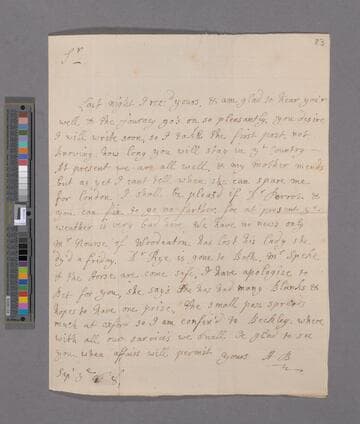 83
Sr
Last night I recd yours, & am glad to hear you'r
well & the journey go's on so pleasantly, you desire
I will write soon, so I take the first post, not
knowing how long you will stay in yt country —
At present we are all well, & my mother mends
but as yet I cant tell when she can spare me
for london. I shall be pleasd if Dr &
you can go no farther, for at present ye
weather is very bad here. We have no news only
Mr Rowse of Woodeaton has lost his lady she
dy'd a friday. Dr is gone to Bath. Mr
& the horse are come safe, I have apologise to
Bet for you, she says she has had many Blanks &
hopes to have one prise, the small pox spreads
much at oxford so I am confin'd to Beckley, where
with all our services we shall be glad to see
you when affairs will permit yours A B
Sepr 3